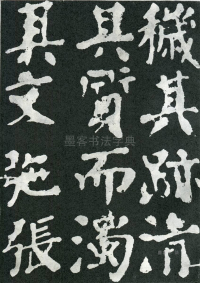 穢其跡清
其質而濁
其文弛張
墨客书法字典